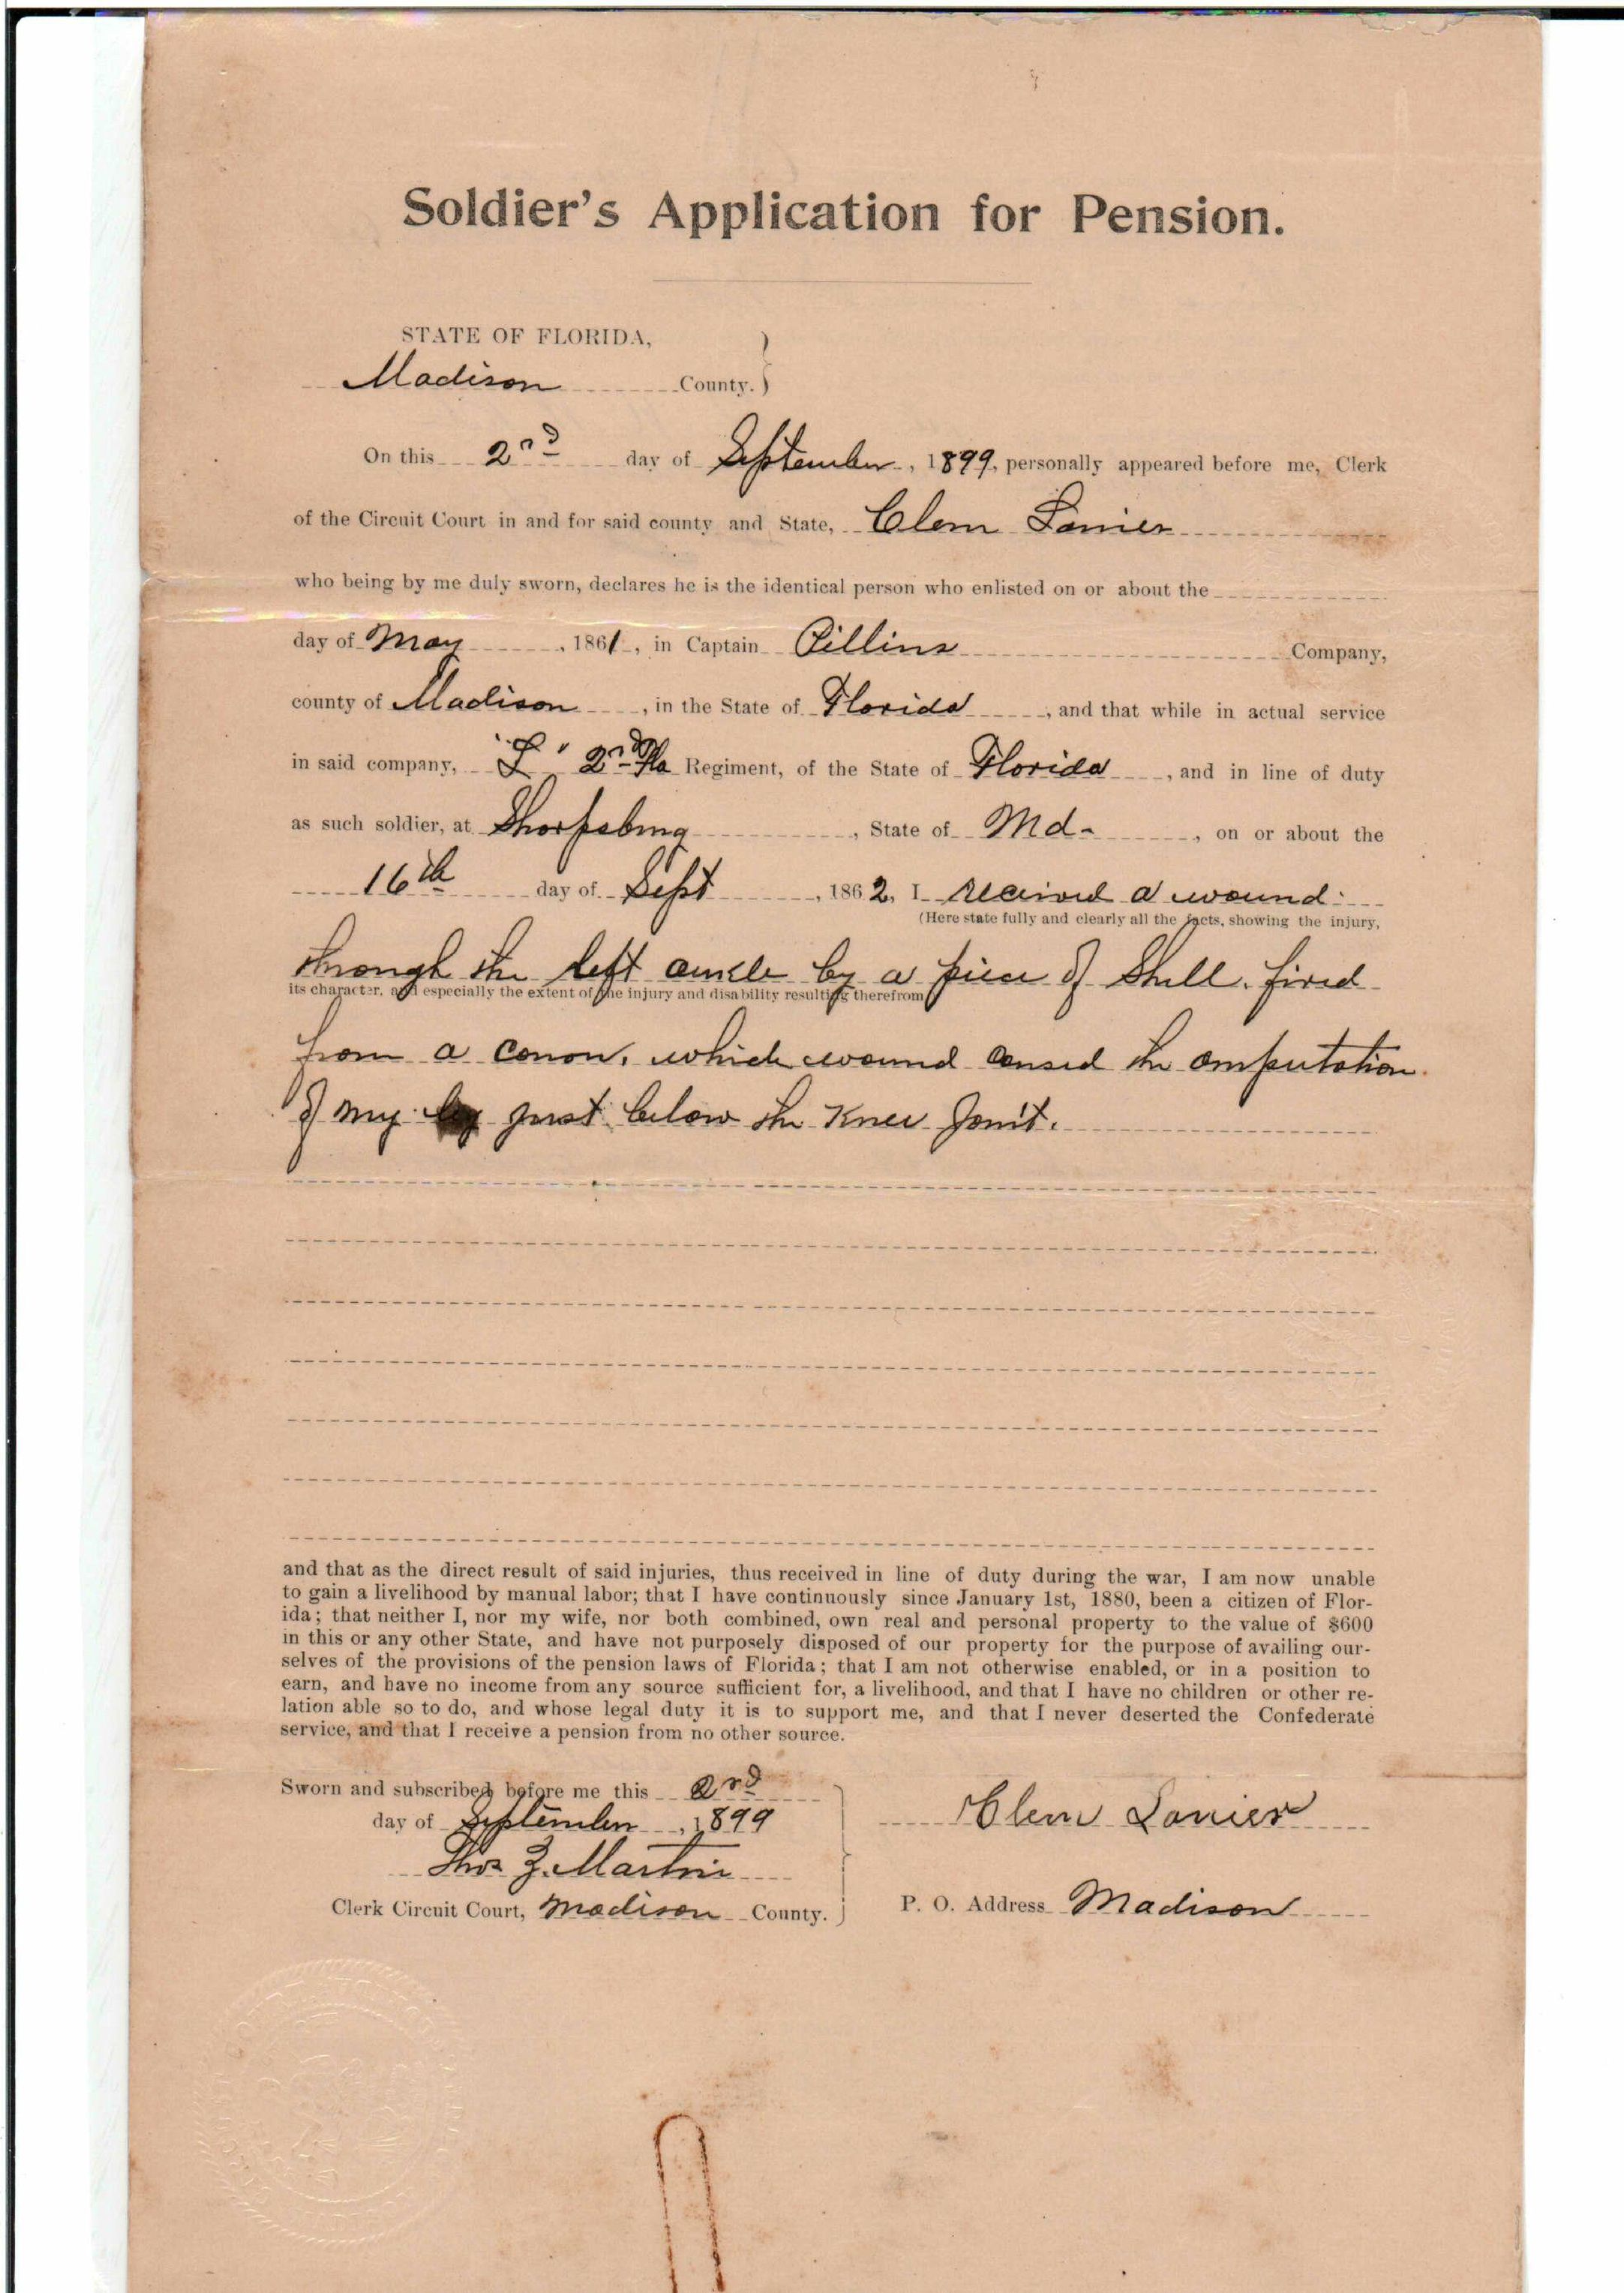 Soldier's Application for Pension.
STATE OF FLORIDA,
Madison County.
On this 2nd day of September, 1899, personally appeared before me, Clerk
of the Circuit Court in and for said county and State, Clem Lanier
who being by me duly sworn, declares he is the identical person who enlisted on or about the
day of May, 1861, in Captain Pillins Company,
county of Madison, in the State of Florida, and that while in actual service
in said company, "L" 2nd Fla Regiment, of the State of Florida, and in line of duty
as such soldier, at Sharpsburg, State of Md-, on or about the
16th day of Sept, 1862, I received a wound
(Here state fully and clearly all the facts, showing the injury,
through the left ankle by a piece of shell. fired
its character, and especially the extent of the injury and disability resulting therefrom
from a canon, which wound caused the amputation
of my leg just below the Knee Joint.
and that as the direct result of said injuries, thus received in line of duty during the war, I am now unable
to gain a livelihood by manual labor; that I have continuously since January 1st, 1880, been a citizen of Flor-
ida; that neither I, nor my wife, nor both combined, own real and personal property to the value of $600
in this or any other State, and have not purposely disposed of our property for the purpose of availing our-
selves of the provisions of the pension laws of Florida; that I am not otherwise enabled, or in a position to
earn, and have no income from any source sufficient for, a livelihood, and that I have no children or other re-
lation able so to do, and whose legal duty it is to support me, and that I never deserted the Confederate
service, and that I receive a pension from no other source.
Sworn and subscribed before me this 2nd
day of September, 1899
Thos Z. Martin
Clerk Circuit Court, Madison County.
Clem Lanier
P. O. Address Madison